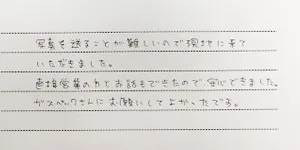 写真を送ることが難しいので現地に来て
いただきました。
直接営業の方とお話もできたので、安心できました。
ガスペックさんにお願いしてよかったです。